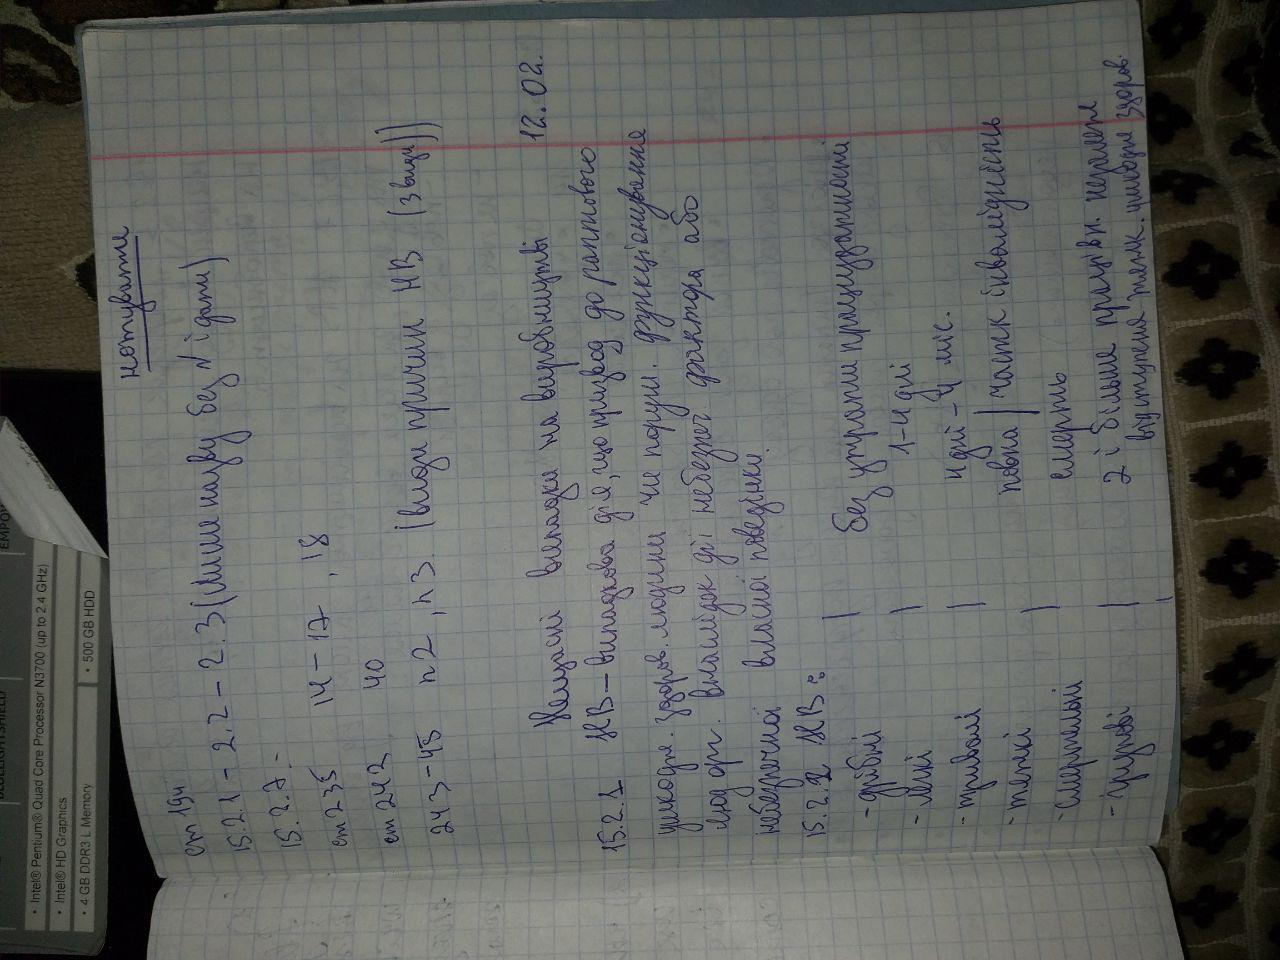 BLUELIGHTSHIELD
EMPOW
• Intel® Pentium® Quad Core Processor N3700 (up to 2.4 GHz)
• Intel® HD Graphics
• 4 GB DDR3 L Memory • 500 GB HDD
нотувати
ст 194
15.2.1 – 2.2 – 2.3 (лише назву без № і дати)
15.2.7.-
ст 235 14–17, 18
ст 242 40
243–45 п2, п3. (види причин НВ (3 види))
Нещасні випадки на виробництві 12.02.
15.2.1 НВ – випадкова дія, що призвод до раптового
ушкодж. здоров. людини чи поруш. функціонування
люд орг. внаслідок дії небезпеч фактора або
небезпечної власної поведінки.
15.2.2 НВ:
-дрібні | без утрати працездатності
-легкі | 1–4 дні
-тривалі | 4 дні – 4 міс.
-тяжкі | повна / частк інвалідність
-смертельні | смерть
-групові | 2 і більше працівн. незалеж
від ступеня тяжк. ушкодж здоров.